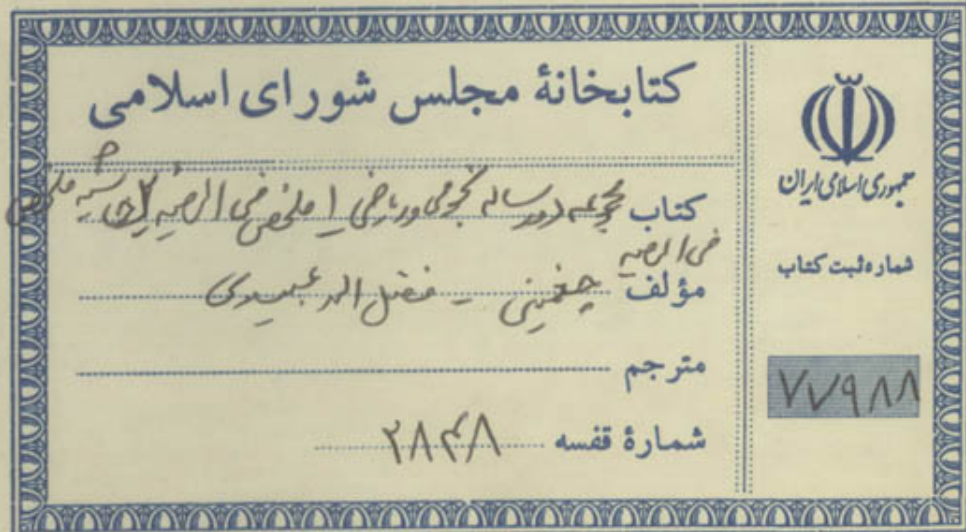 کتابخانهٔ مجلس شورای اسلامی
کتاب مجموعه دو رساله نجومی و ریاضی ۱ ملخص فی الهیئه ۲ حاشیه ملخص
فی الهیئه
مؤلف چغمینی - فضل الله عبیدی
مترجم
شمارهٔ قفسه ۲۸۴۸
جمهوری اسلامی ایران
شماره ثبت کتاب
۷۷۹۸۸